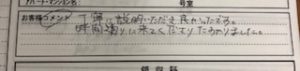 アパート・マンション名
号室
お客様コメント
丁寧に説明いただき良かったです。
時間通りに来てくださり たすかりました。
領収料